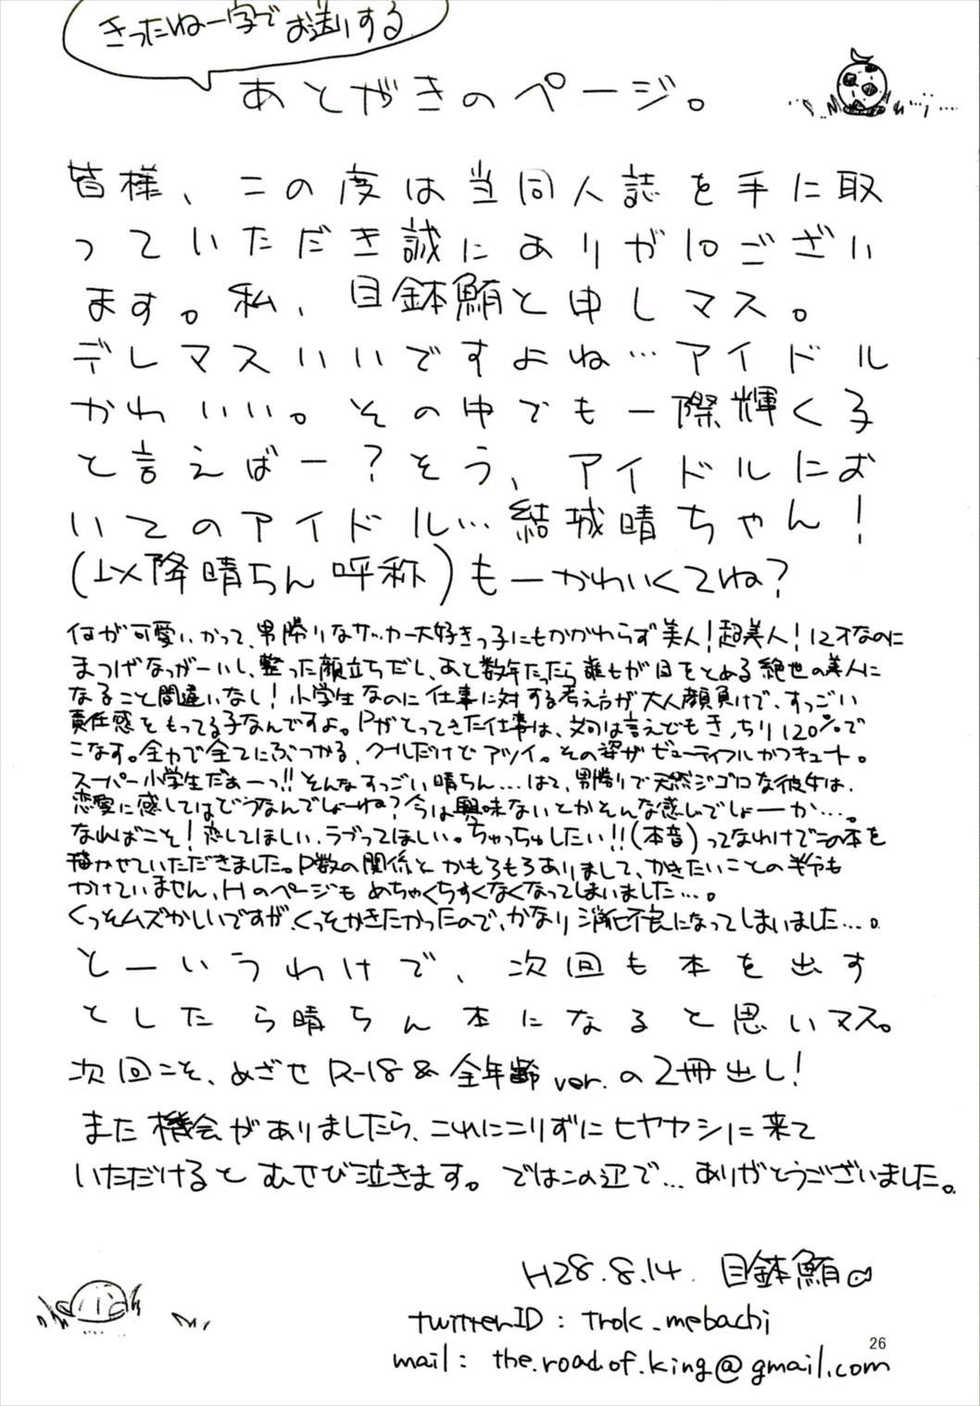 きったねー字でお送りする
あとがきのページ。
皆様、この度は当同人誌を手に取
っていただき誠にありが10ござい
ます。私、目鉢鮪と申しマス。
デレマスいいですよね…アイドル
かわいい。その中でも一際輝く子
と言えばー?そう、アイドルにお
いてのアイドル…結城晴ちゃん!
(以降晴ちん呼称)もーかわいくてね?
何が可愛いかって、男勝りなサッカー大好きっ子にもかかわらず美人!超美人!12才なのに
まつげなっがーいし、整った顔立ちだし、あと数年たったら誰もが目をとめる絶世の美人に
なること間違いなし!小学生なのに仕事に対する考え方が大人顔負けで、すっごい
責任感をもってる子なんですよ。Pがとってきた仕事は、文句は言えどもきっちり120%で
こなす。全力で全てにぶつかる、クールだけどアツイ。その姿がビューティフルかつキュート。
スーパー小学生だぁーっ!!そんなすっごい晴ちん…はて、男勝りで天然ジゴロな彼女は、
恋愛に感してはどうなんでしょーね?今は興味ないとかそんな感じでしょーか…。
なればこそ!恋してほしい、ラブってほしい。ちゃっちゅしたい!!(本音)ってなわけでこの本を
描かせていただきました。P数の関係とかもろもろありまして、かきたいことの半分も
かけていません、Hのページもめちゃくちゃすくなくなってしまいました…。
くっそムズかしいですが、くっそかきたかったので、かなり消化不良になってしまいました…。
とーいうわけで、次回も本を出す
としたら晴ちん本になると思いマス。
次回こそ、めざせR-18&全年齢ver.の2冊出し!
また機会がありましたら、これにこりずにヒヤカシに来て
いただけるとむせび泣きます。ではこの辺で…ありがとうございました。
H28.8.14. 目鉢鮪
twitterID : Trok_mebachi
26
mail : the.road.of.king@gmail.com